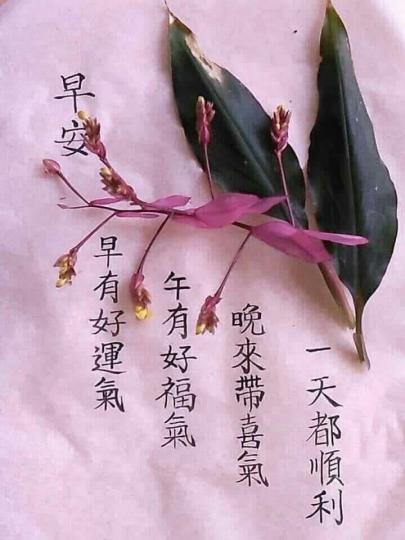 早安
早有好運氣
午有好福氣
晚來帶喜氣
一天都順利